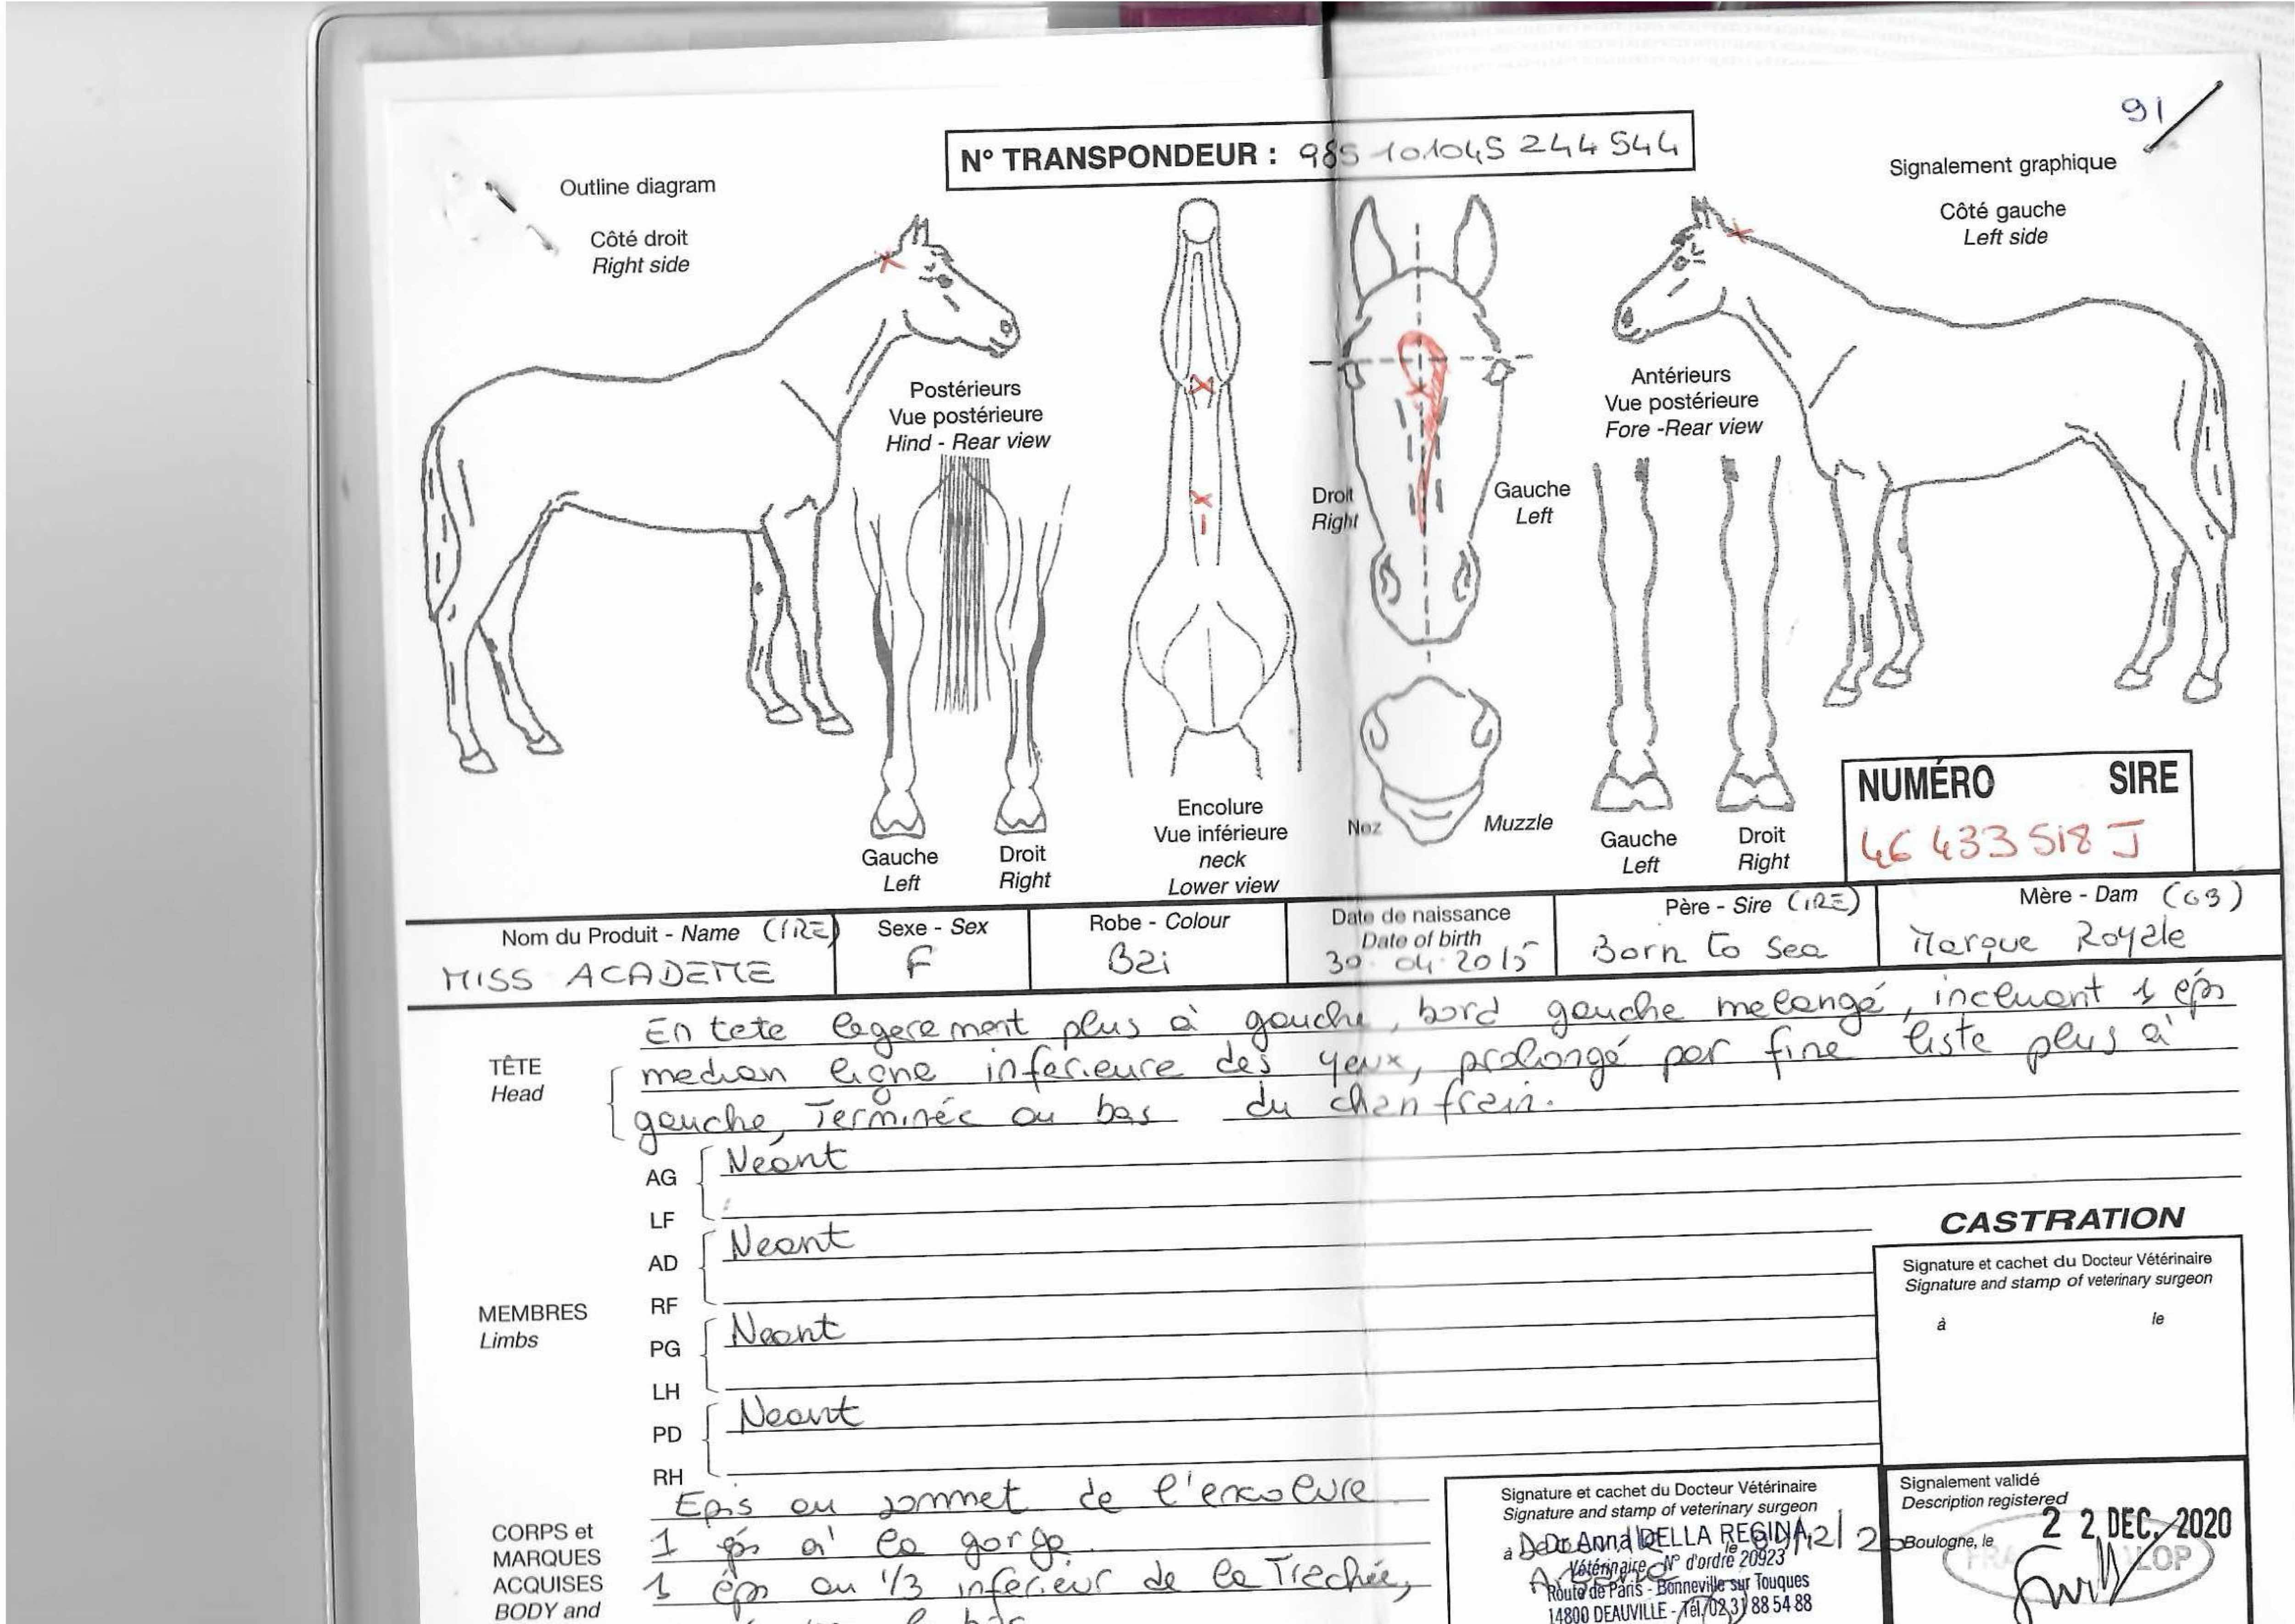 91
N° TRANSPONDEUR : 985 101045 244 544
Outline diagram
Signalement graphique
Côté droit
Right side
Côté gauche
Left side
Postérieurs
Vue postérieure
Hind - Rear view
Antérieurs
Vue postérieure
Fore -Rear view
Droit
Right
Gauche
Left
Gauche
Left
Droit
Right
Encolure
Vue inférieure
neck
Lower view
Nez
Muzzle
Gauche
Left
Droit
Right
NUMÉRO SIRE
46 433 518 J
Nom du Produit - Name (IRE)
MISS ACADEME
Sexe - Sex
F
Robe - Colour
Bai
Date de naissance
Date of birth
30.04.2015
Père - Sire (IRE)
Born to Sea
Mère - Dam (GB)
Marque Royale
TÊTE
Head
En tete legerement plus à gauche, bord gauche melangé, incluant 1 épi
median ligne inferieure des yeux, prolongé par fine liste plus à
gauche, Terminée au bas du chanfrein.
AG
LF
Neant
AD
RF
Neant
MEMBRES
Limbs
PG
LH
Neant
PD
RH
Neant
CASTRATION
Signature et cachet du Docteur Vétérinaire
Signature and stamp of veterinary surgeon
à le
CORPS et
MARQUES
ACQUISES
BODY and
Epis au sommet de l'encolure
1 épi à la gorge
1 épi au 1/3 inferieur de la Trachée,
Signature et cachet du Docteur Vétérinaire
Signature and stamp of veterinary surgeon
à le
Dr Anna DELLA REGINA
Vétérinaire - N° d'ordre 20923
Route de Paris - Bonneville sur Touques
14800 DEAUVILLE - Tél. 02 31 88 54 88
Signalement validé
Description registered
Boulogne, le 22 DEC. 2020